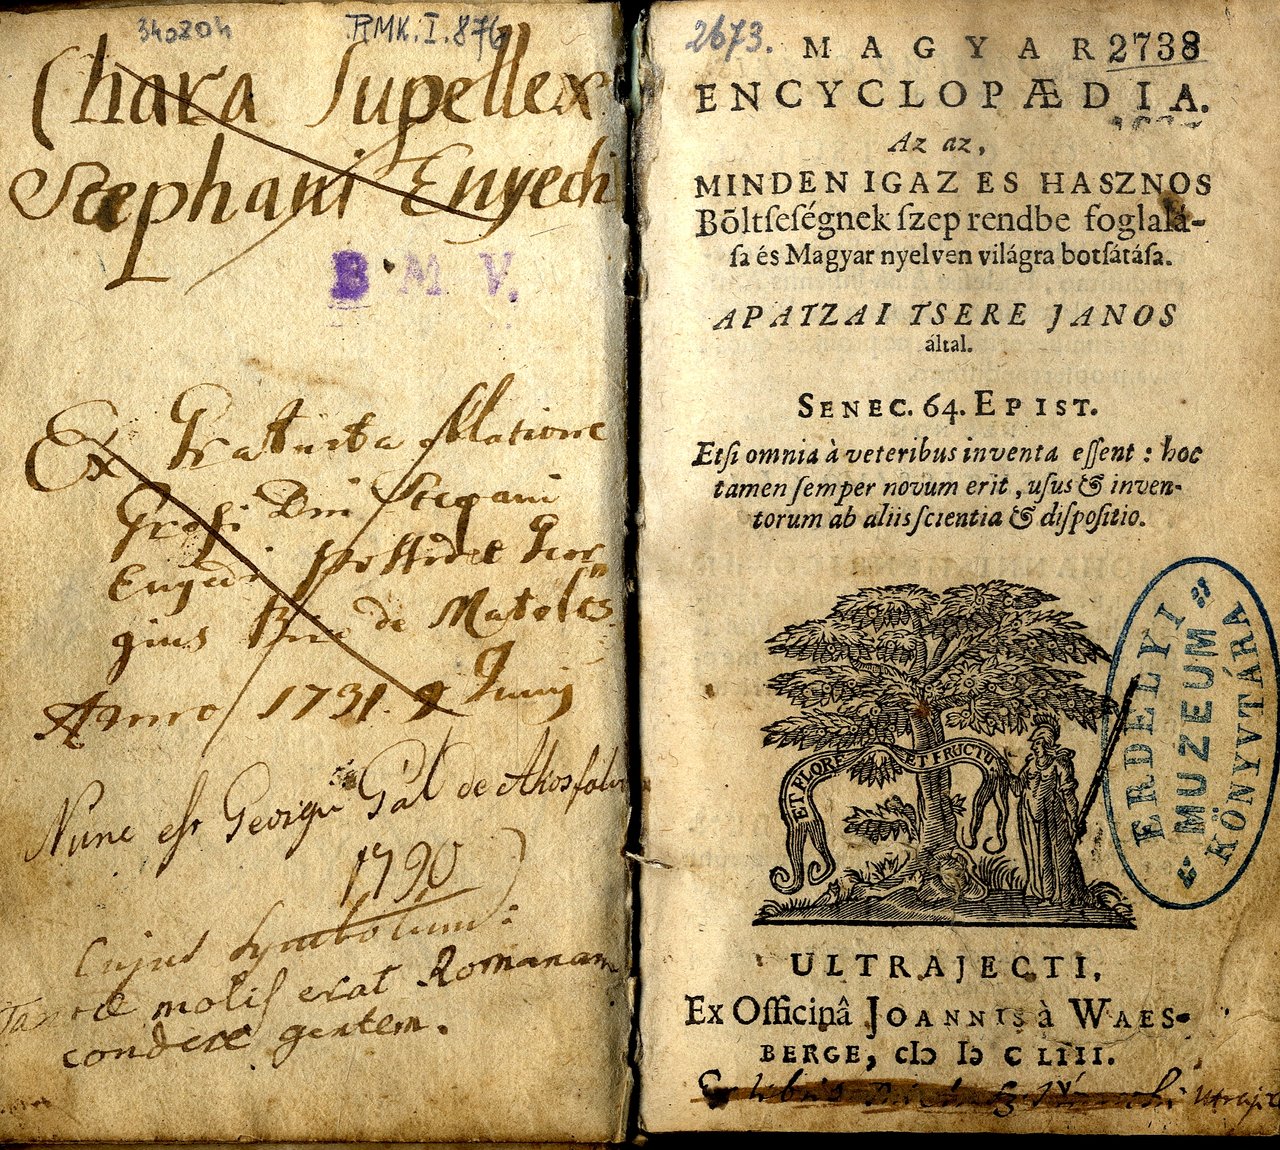 340204
RMK. I. 876
Chara Supellex
Stephani Enyedi
B. M. V.
Ex Gratuita oblatione
Stepani
Enyedi possidet Geor
gius de Matolcs
Anno 1731. 2 Junij
Nunc est Georgii Gál de Akosfalva
1790
Cujus Symbolum:
Tantae molis erat Romanam
condere gentem.
2673.
MAGYAR 2738
ENCYCLOPÆDIA.
Az az,
MINDEN IGAZ ES HASZNOS
Bőltſeſégnek ſzep rendbe foglalá-
ſa és Magyar nyelven világra botſátáſa.
APATZAI TSERE JANOS
által.
SENEC. 64. EPIST.
Etſi omnia à veteribus inventa eſſent : hoc
tamen ſemper novum erit , uſus & inven-
torum ab aliis ſcientia & diſpoſitio.
ET FLORE ET FRUCTU
ERDÉLYI
MUZEUM
KÖNYVTÁRA
ULTRAJECTI,
Ex Officinâ JOANNIS à WAES-
BERGE, cIɔ Iɔ C LIII.
Ex libris